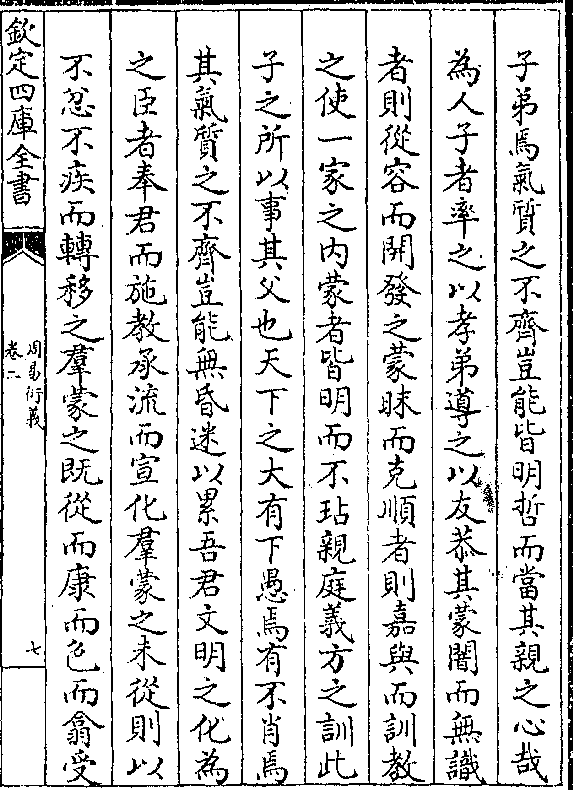 子弟焉氣質之不齊豈能皆明哲而當其親之心哉
為人子者率之以孝弟導之以友恭其蒙闇而無識
者則從容而開發之蒙昧而克順者則嘉與而訓教
之使一家之内蒙者皆明而不玷親庭義方之訓此
子之所以事其父也天下之大有下愚焉有不肖焉
其氣質之不齊豈能無昏迷以累吾君文明之化為
之臣者奉君而施教承流而宣化羣蒙之未從則以
不忿不疾而轉移之羣蒙之既從而康而色而翕受
欽定四庫全書
周易衍義
卷二
七